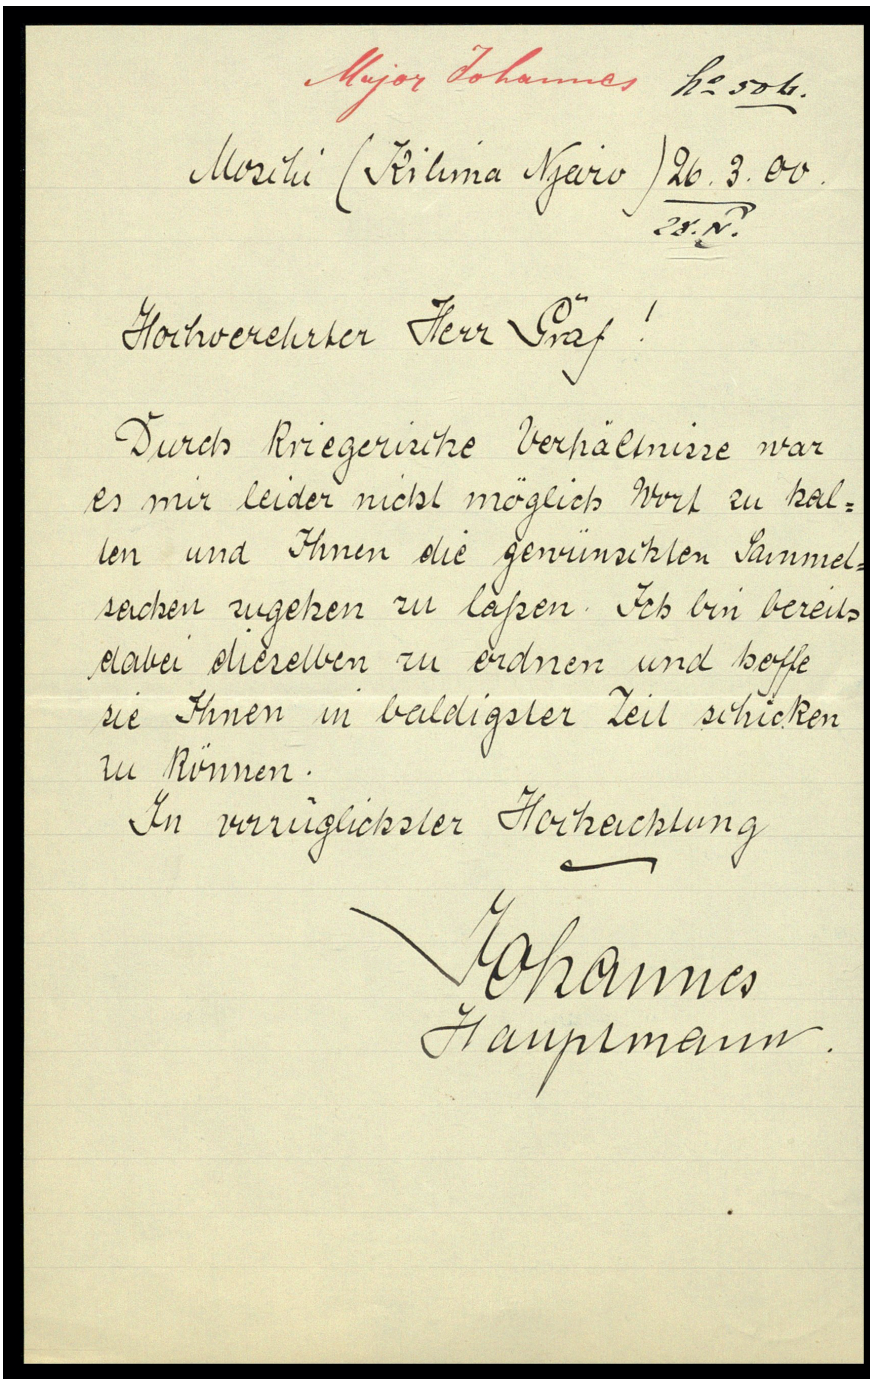 Major Johannes
Moschi (Kilima Njaro) 26. 3. 00.
Hochverehrter Herr Graf!
Durch kriegerische Verhältnisse war
es mir leider nicht möglich Wort zu hal=
ten und Ihnen die gewünschten Sammel=
sachen zugehen zu laßen. Ich bin bereits
dabei dieselben zu ordnen und hoffe
sie Ihnen in baldigster Zeit schicken
zu können.
In vorzüglichster Hochachtung
Johannes
Hauptmann.